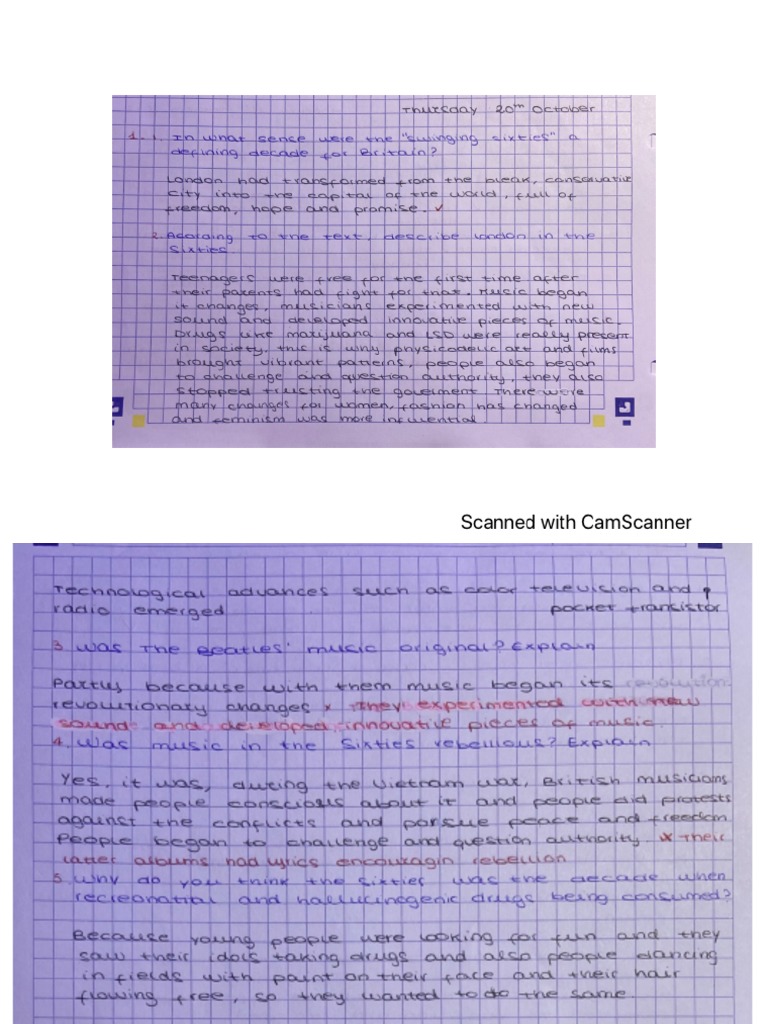 Thursday 20th October
1. 1. In what sense were the "swinging sixties" a
defining decade for Britain?
London had transformed from the bleak, conservative
city into the capital of the world, full of
freedom, hope and promise. ✓
2. Acording to the text, describe London in the
Sixties.
Teenagers were free for the first time after
their parents had fight for that. Music began
it changes, musicians experimented with new
sound and developed innovative pieces of music.
Drugs like marijuana and LSD were really present
in society, this is why physicodelic art and films
brought vibrant patterns, people also began
to challenge and question authority, they also
stopped trusting the goverment There were
many changes for women, fashion has changed
and feminism was more influential.
Scanned with CamScanner
Technological advances such as color television and
radio emerged pocket transistor
3. Was The Beatles' music original? Explain
Partly because with them music began its revolution
revolutionary changes * They experimented with new
sound and developed innovative pieces of music.
4. Was music in the Sixties rebellious? Explain
Yes, it was, during the Vietnam war, British musicians
made people conscious about it and people did protests
against the conflicts and pursue peace and freedom
People began to challenge and question authority * Their
latter albums had lyrics encouragin rebellion
5. Why do you think the sixties was the decade when
and hallucinogenic drugs being consumed?
Because young people were looking for fun and they
saw their idols taking drugs and also people dancing
in fields with paint on their face and their hair
flowing free, so they wanted to do the same.